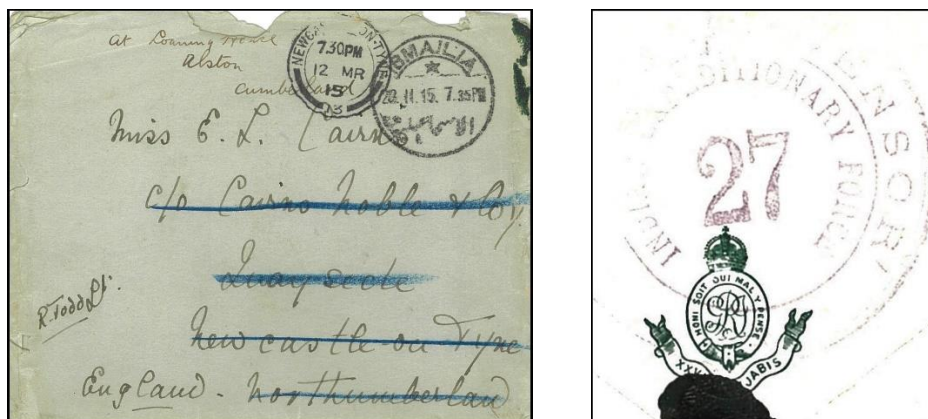 At Loaning House
Alston
Cumberland
NEWCASTLE-ON-TYNE
7.30PM
12 MR
15
ISMAILIA
20.II.15. 7.35PM
Miss E. L. Cairns
c/o Cairns Noble & Coy.
Quayside
Newcastle-on Tyne
England. Northumberland
R. Todd Lt.
CENSOR
INDIAN EXPEDITIONARY FORCE
27
HONI SOIT QUI MAL Y PENSE
JABIS